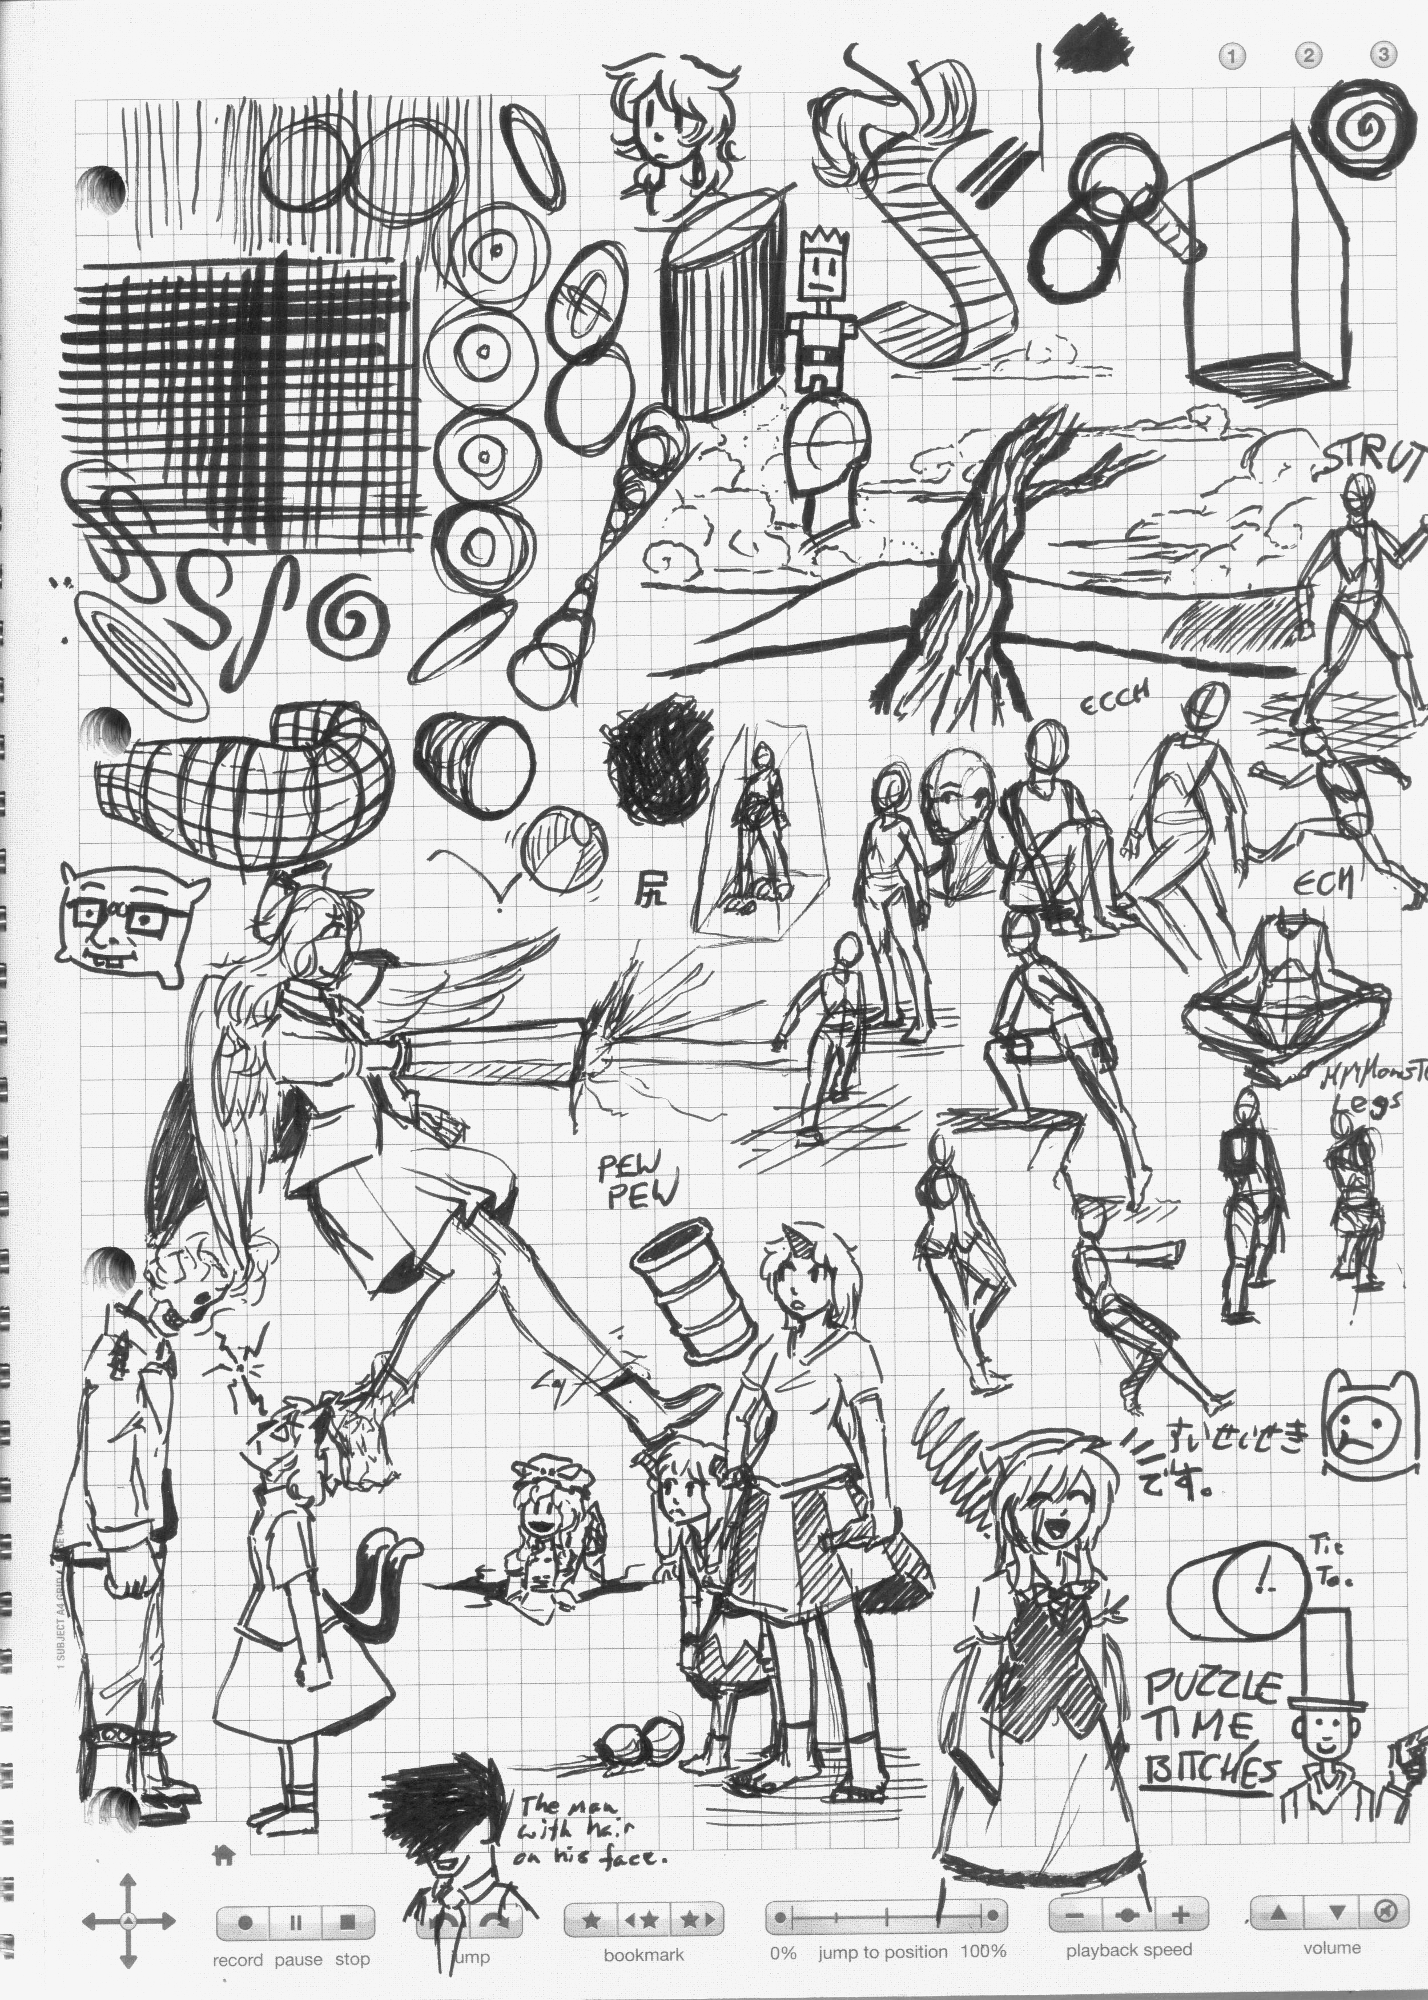 1 2 3
STRUT
ECCH
ECH
Legs
PEW
PEW
すいせいせき
です。
Tic
Toc
PUZZLE
TIME
BITCHES
The man
with hair
on his face.
1 SUBJECT A4 GRID
record pause stop
jump
bookmark
0% jump to position 100%
playback speed
volume